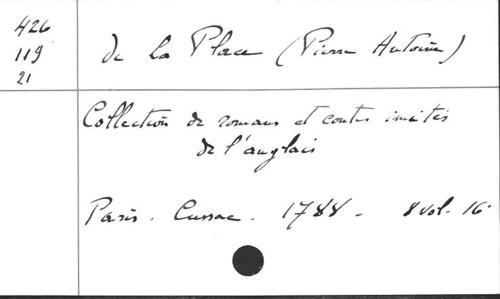 426
119
21
de la Place (Pierre Antoine)
Collection de romans et contes imités
de l'anglais
Paris. Cussac. 1788 - 8 vol. 16°